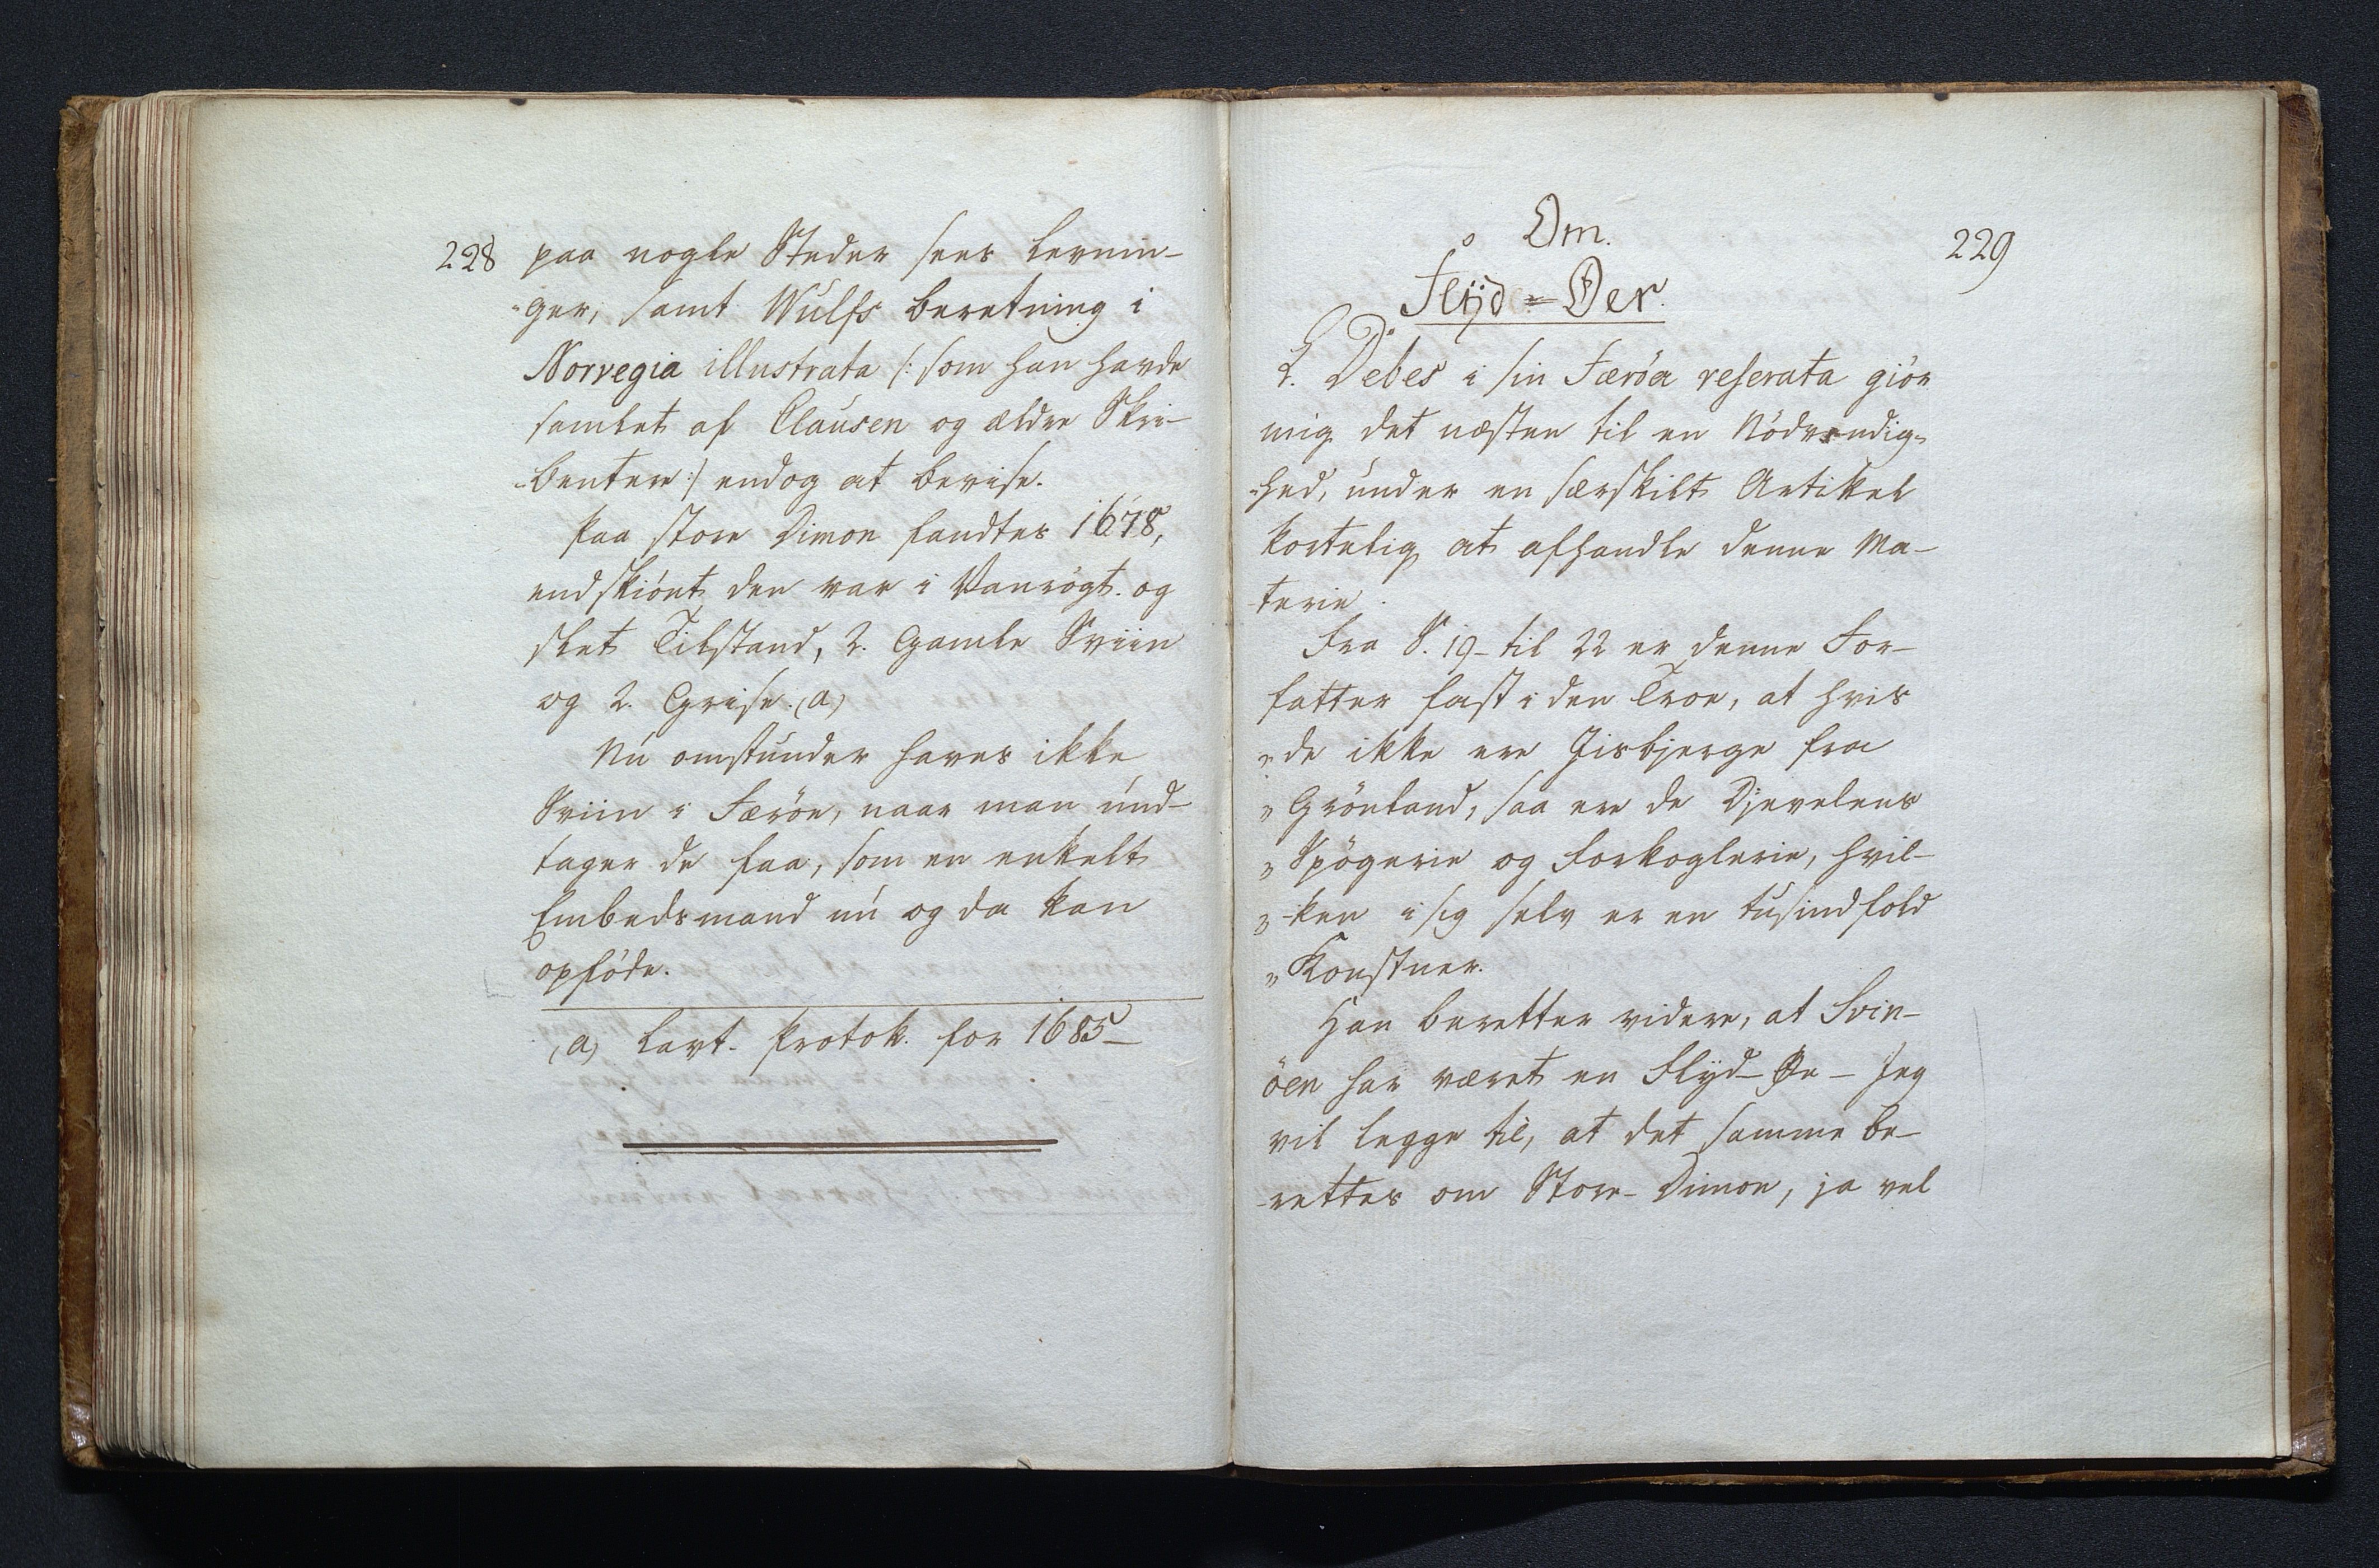 228
paa nogle Steder sees Levnin-
-ger, samt Wulfs beretning i
Norvegia illustrata /: som han havde
samlet af Clausen og ældre Skri-
-benter :/ endog at bevise.
Paa store Dimon fandtes 1678,
endskiönt den var i Vanrögt og
slet Tilstand, 2. Gamle Sviin
og 2. Grise. (a)
Nu omstunder haves ikke
Sviin i Færöe, naar man und-
tager de faa, som en enkelt
Embedsmand nu og da kan
opföde.
(a) Lavt. Protok. for 1685-
229
Om.
Flÿd=Öer.
L. Debes i sin Færöa reserata giör
mig det næsten til en Nödvendig-
-hed, under en særskilt Artikel
kortelig at afhandle denne Ma-
-terie.
Fra S. 19- til 22 er denne For-
fatter fast i den Troe, at hvis
"de ikke ere Iisbjerge fra
"Grönland, saa ere de Djevelens
"Spögerie og Forkoglerie, hvil-
"-ken i sig selv er en tusindfold
"Konstner.
Han beretter videre, at Svin-
öen har været en Flyd-Øe - Jeg
vil legge til, at det samme be-
-rettes om Store-Dimon, ja vel